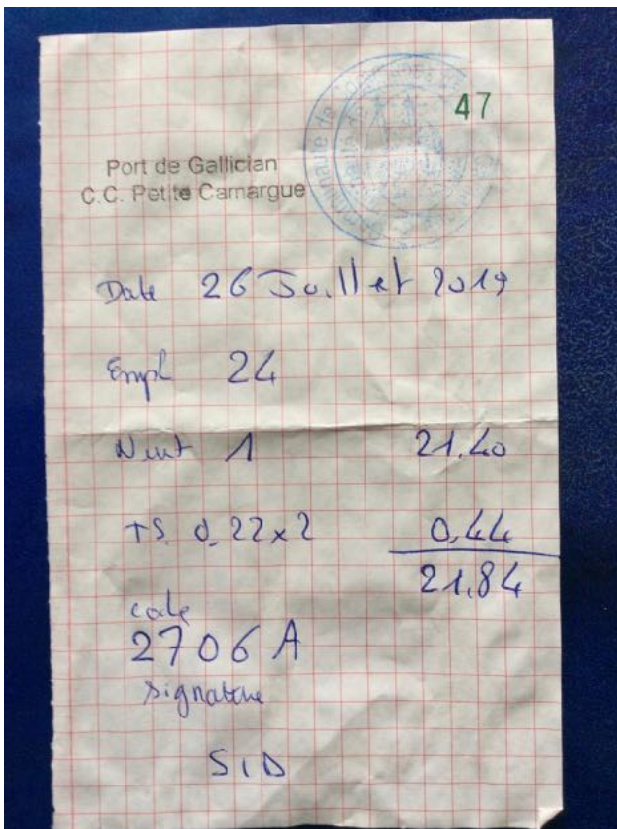 47
Port de Gallician
C.C. Petite Camargue
Date 26 Juillet 2019
Empl 24
Nuit 1 21.40
TS 0.22x2 0,44
21.84
code
2706A
signature
SID